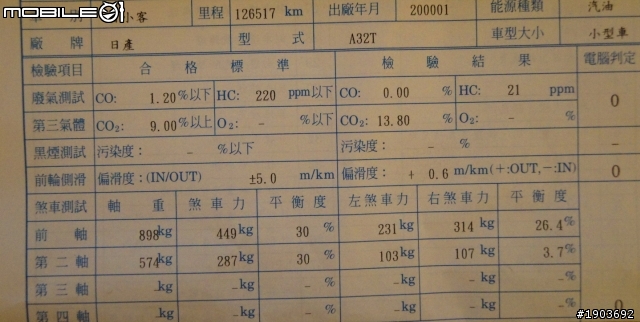 mobile01
別 小客 里程 126517 km 出廠年月 200001 能源種類 汽油
廠牌 日產 型式 A32T 車型大小 小型車
檢驗項目 合格標準 檢驗結果 電腦判定
廢氣測試 CO: 1.20 %以下 HC: 220 ppm以下 CO: 0.00 % HC: 21 ppm 0
第三氣體 CO2: 9.00 %以上 O2: – % CO2: 13.80 % O2: – %
黑煙測試 污染度: – %以下 污染度: – % –
前輪側滑 偏滑度:(IN/OUT) ±5.0 m/km 偏滑度: + 0.6 m/km(+:OUT,−:IN) 0
煞車測試 軸重 煞車力 平衡度 左煞車力 右煞車力 平衡度
前軸 898kg 449kg 30 % 231kg 314 kg 26.4 %
第二軸 574kg 287kg 30 % 103kg 107 kg 3.7 %
第三軸 –kg –kg – % –kg –kg – %
第四軸 –kg –kg – % –kg –kg – % 0
#1903692